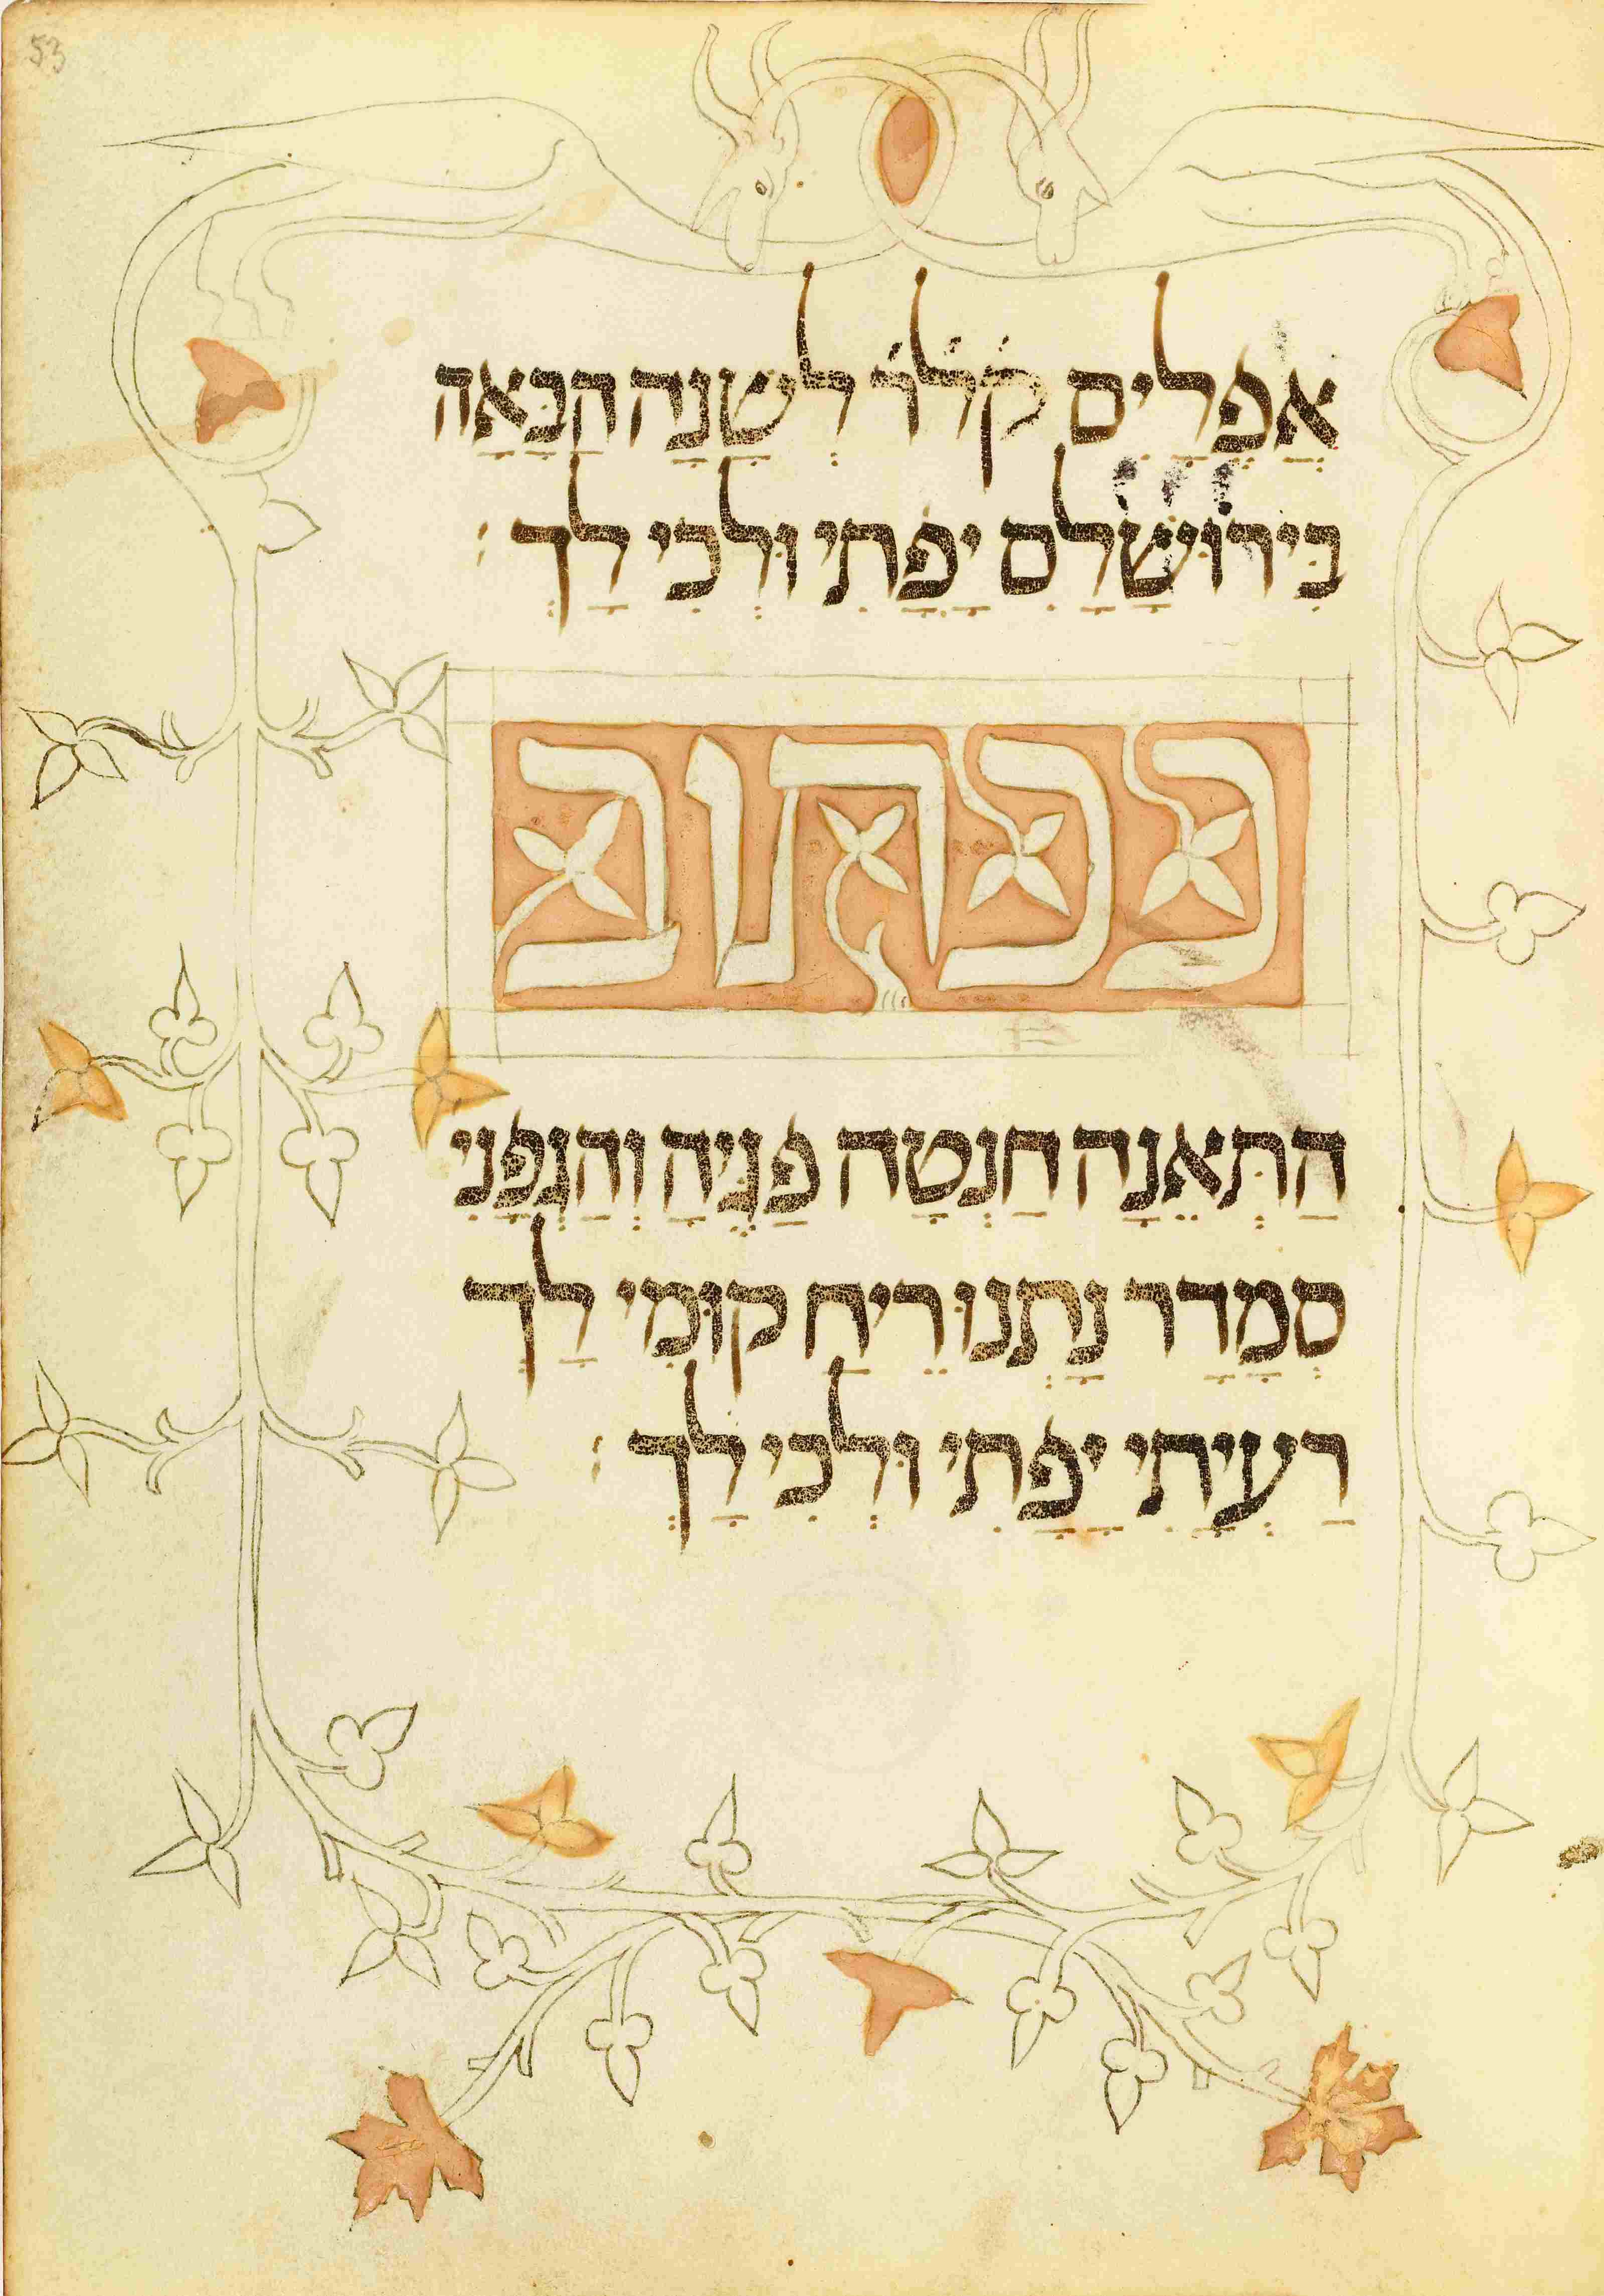 53
אֲפָלִים קׄלׄרׄ לְשָׁנָה הַבָּאָה
בִּירוּשָׁלַםִ יָפָתִי וּלְכִי לָךְ :
ככתוב
הַתְּאֵנָה חָנְטָה פַגֶּיהָ וְהַגְּפָנִי
סְמָדַר נָתְנוּ רֵיחַ קוּמִי לָךְ
רַעְיָתִי יָפָתִי וּלְכִי לָךְ :